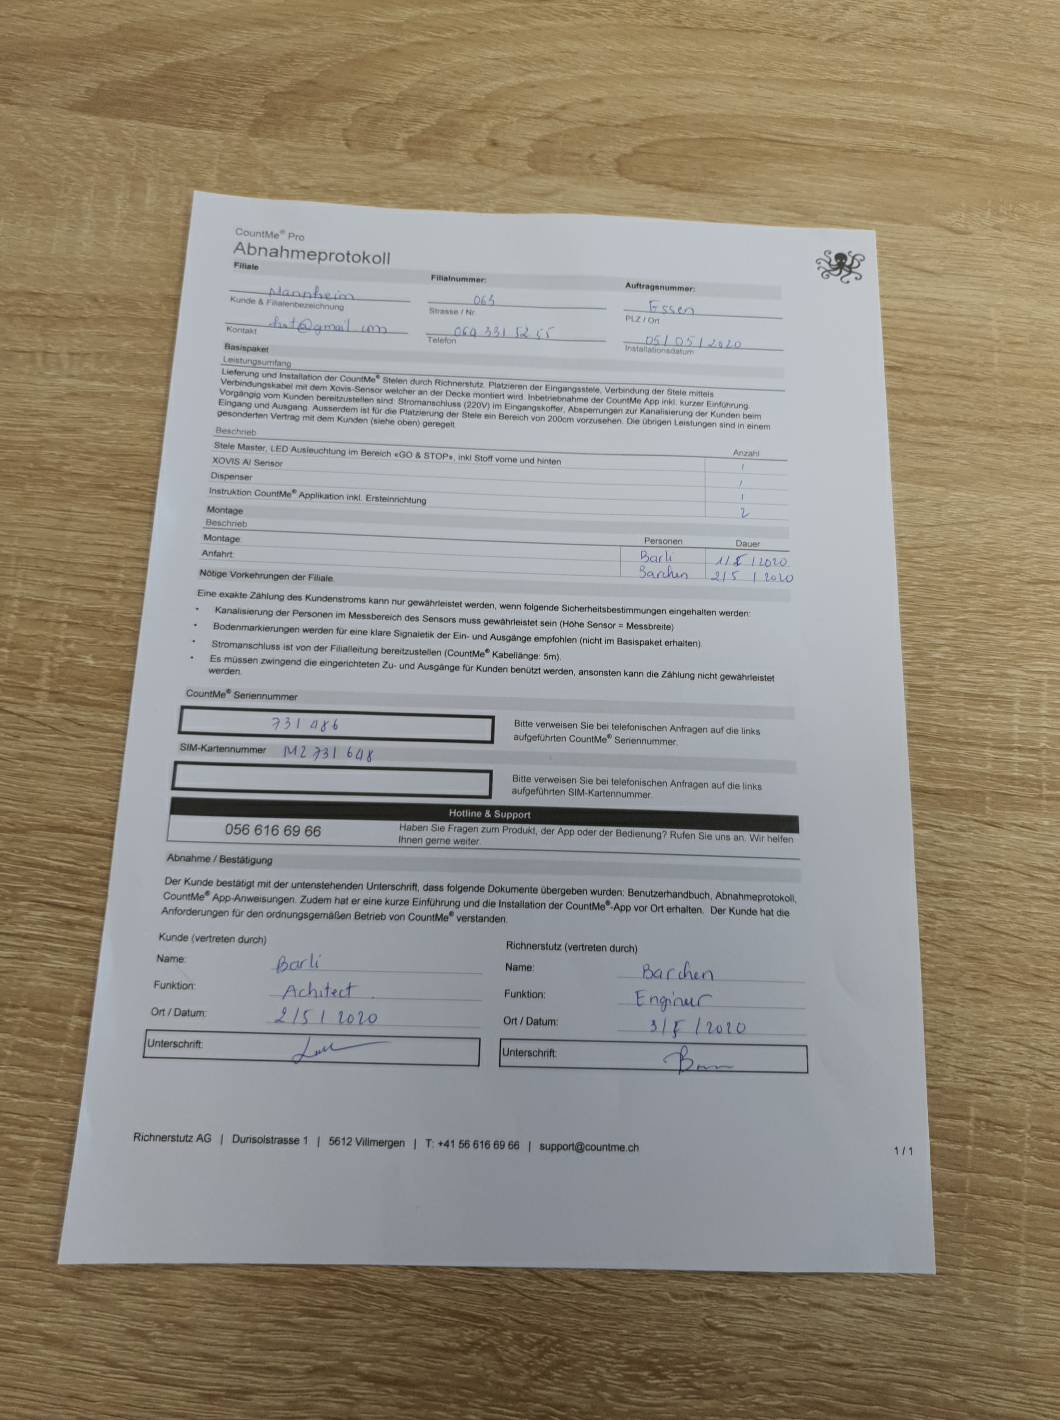 CountMe® Pro
Abnahmeprotokoll
Filiale
Filialnummer:
Auftragsnummer:
Mannheim
065
Essen
Kunde & Filialenbezeichnung
Strasse / Nr.
PLZ / Ort
@gmail
05/05/2020
Kontakt
Telefon
Installationsdatum
Basispaket
Leistungsumfang
Lieferung und Installation der CountMe® Stelen durch Richnerstutz. Platzieren der Eingangsstele, Verbindung der Stele mittels
Verbindungskabel mit dem Xovis-Sensor welcher an der Decke montiert wird. Inbetriebnahme der CountMe App inkl. kurzer Einführung.
Vorgängig vom Kunden bereitzustellen sind: Stromanschluss (220V) im Eingangskoffer, Absperrungen zur Kanalisierung der Kunden beim
Eingang und Ausgang. Ausserdem ist für die Platzierung der Stele ein Bereich von 200cm vorzusehen. Die übrigen Leistungen sind in einem
gesonderten Vertrag mit dem Kunden (siehe oben) geregelt.
Beschrieb
Anzahl
Stele Master, LED Ausleuchtung im Bereich «GO & STOP», inkl Stoff vorne und hinten
1
XOVIS AI Sensor
1
Dispenser
1
Instruktion CountMe® Applikation inkl. Ersteinrichtung
2
Montage
Beschrieb
Personen
Dauer
Montage:
Barli
1/5/2020
Anfahrt:
Barchen
2/5/2020
Nötige Vorkehrungen der Filiale.
Eine exakte Zählung des Kundenstroms kann nur gewährleistet werden, wenn folgende Sicherheitsbestimmungen eingehalten werden:
• Kanalisierung der Personen im Messbereich des Sensors muss gewährleistet sein (Höhe Sensor = Messbreite)
• Bodenmarkierungen werden für eine klare Signaletik der Ein- und Ausgänge empfohlen (nicht im Basispaket erhalten)
• Stromanschluss ist von der Filialleitung bereitzustellen (CountMe® Kabellänge: 5m).
• Es müssen zwingend die eingerichteten Zu- und Ausgänge für Kunden benützt werden, ansonsten kann die Zählung nicht gewährleistet
werden.
CountMe® Seriennummer
731486
Bitte verweisen Sie bei telefonischen Anfragen auf die links
aufgeführten CountMe® Seriennummer.
SIM-Kartennummer M2731648
Bitte verweisen Sie bei telefonischen Anfragen auf die links
aufgeführten SIM-Kartennummer.
Hotline & Support
056 616 69 66
Haben Sie Fragen zum Produkt, der App oder der Bedienung? Rufen Sie uns an. Wir helfen
Ihnen gerne weiter.
Abnahme / Bestätigung
Der Kunde bestätigt mit der untenstehenden Unterschrift, dass folgende Dokumente übergeben wurden: Benutzerhandbuch, Abnahmeprotokoll,
CountMe® App-Anweisungen. Zudem hat er eine kurze Einführung und die Installation der CountMe®-App vor Ort erhalten. Der Kunde hat die
Anforderungen für den ordnungsgemäßen Betrieb von CountMe® verstanden.
Kunde (vertreten durch)
Richnerstutz (vertreten durch)
Name: Barli
Name: Barchen
Funktion: Achitect
Funktion: Enginur
Ort / Datum: 2/5/2020
Ort / Datum: 3/5/2020
Unterschrift:
Unterschrift:
Richnerstutz AG | Durisolstrasse 1 | 5612 Villmergen | T: +41 56 616 69 66 | support@countme.ch
1 / 1